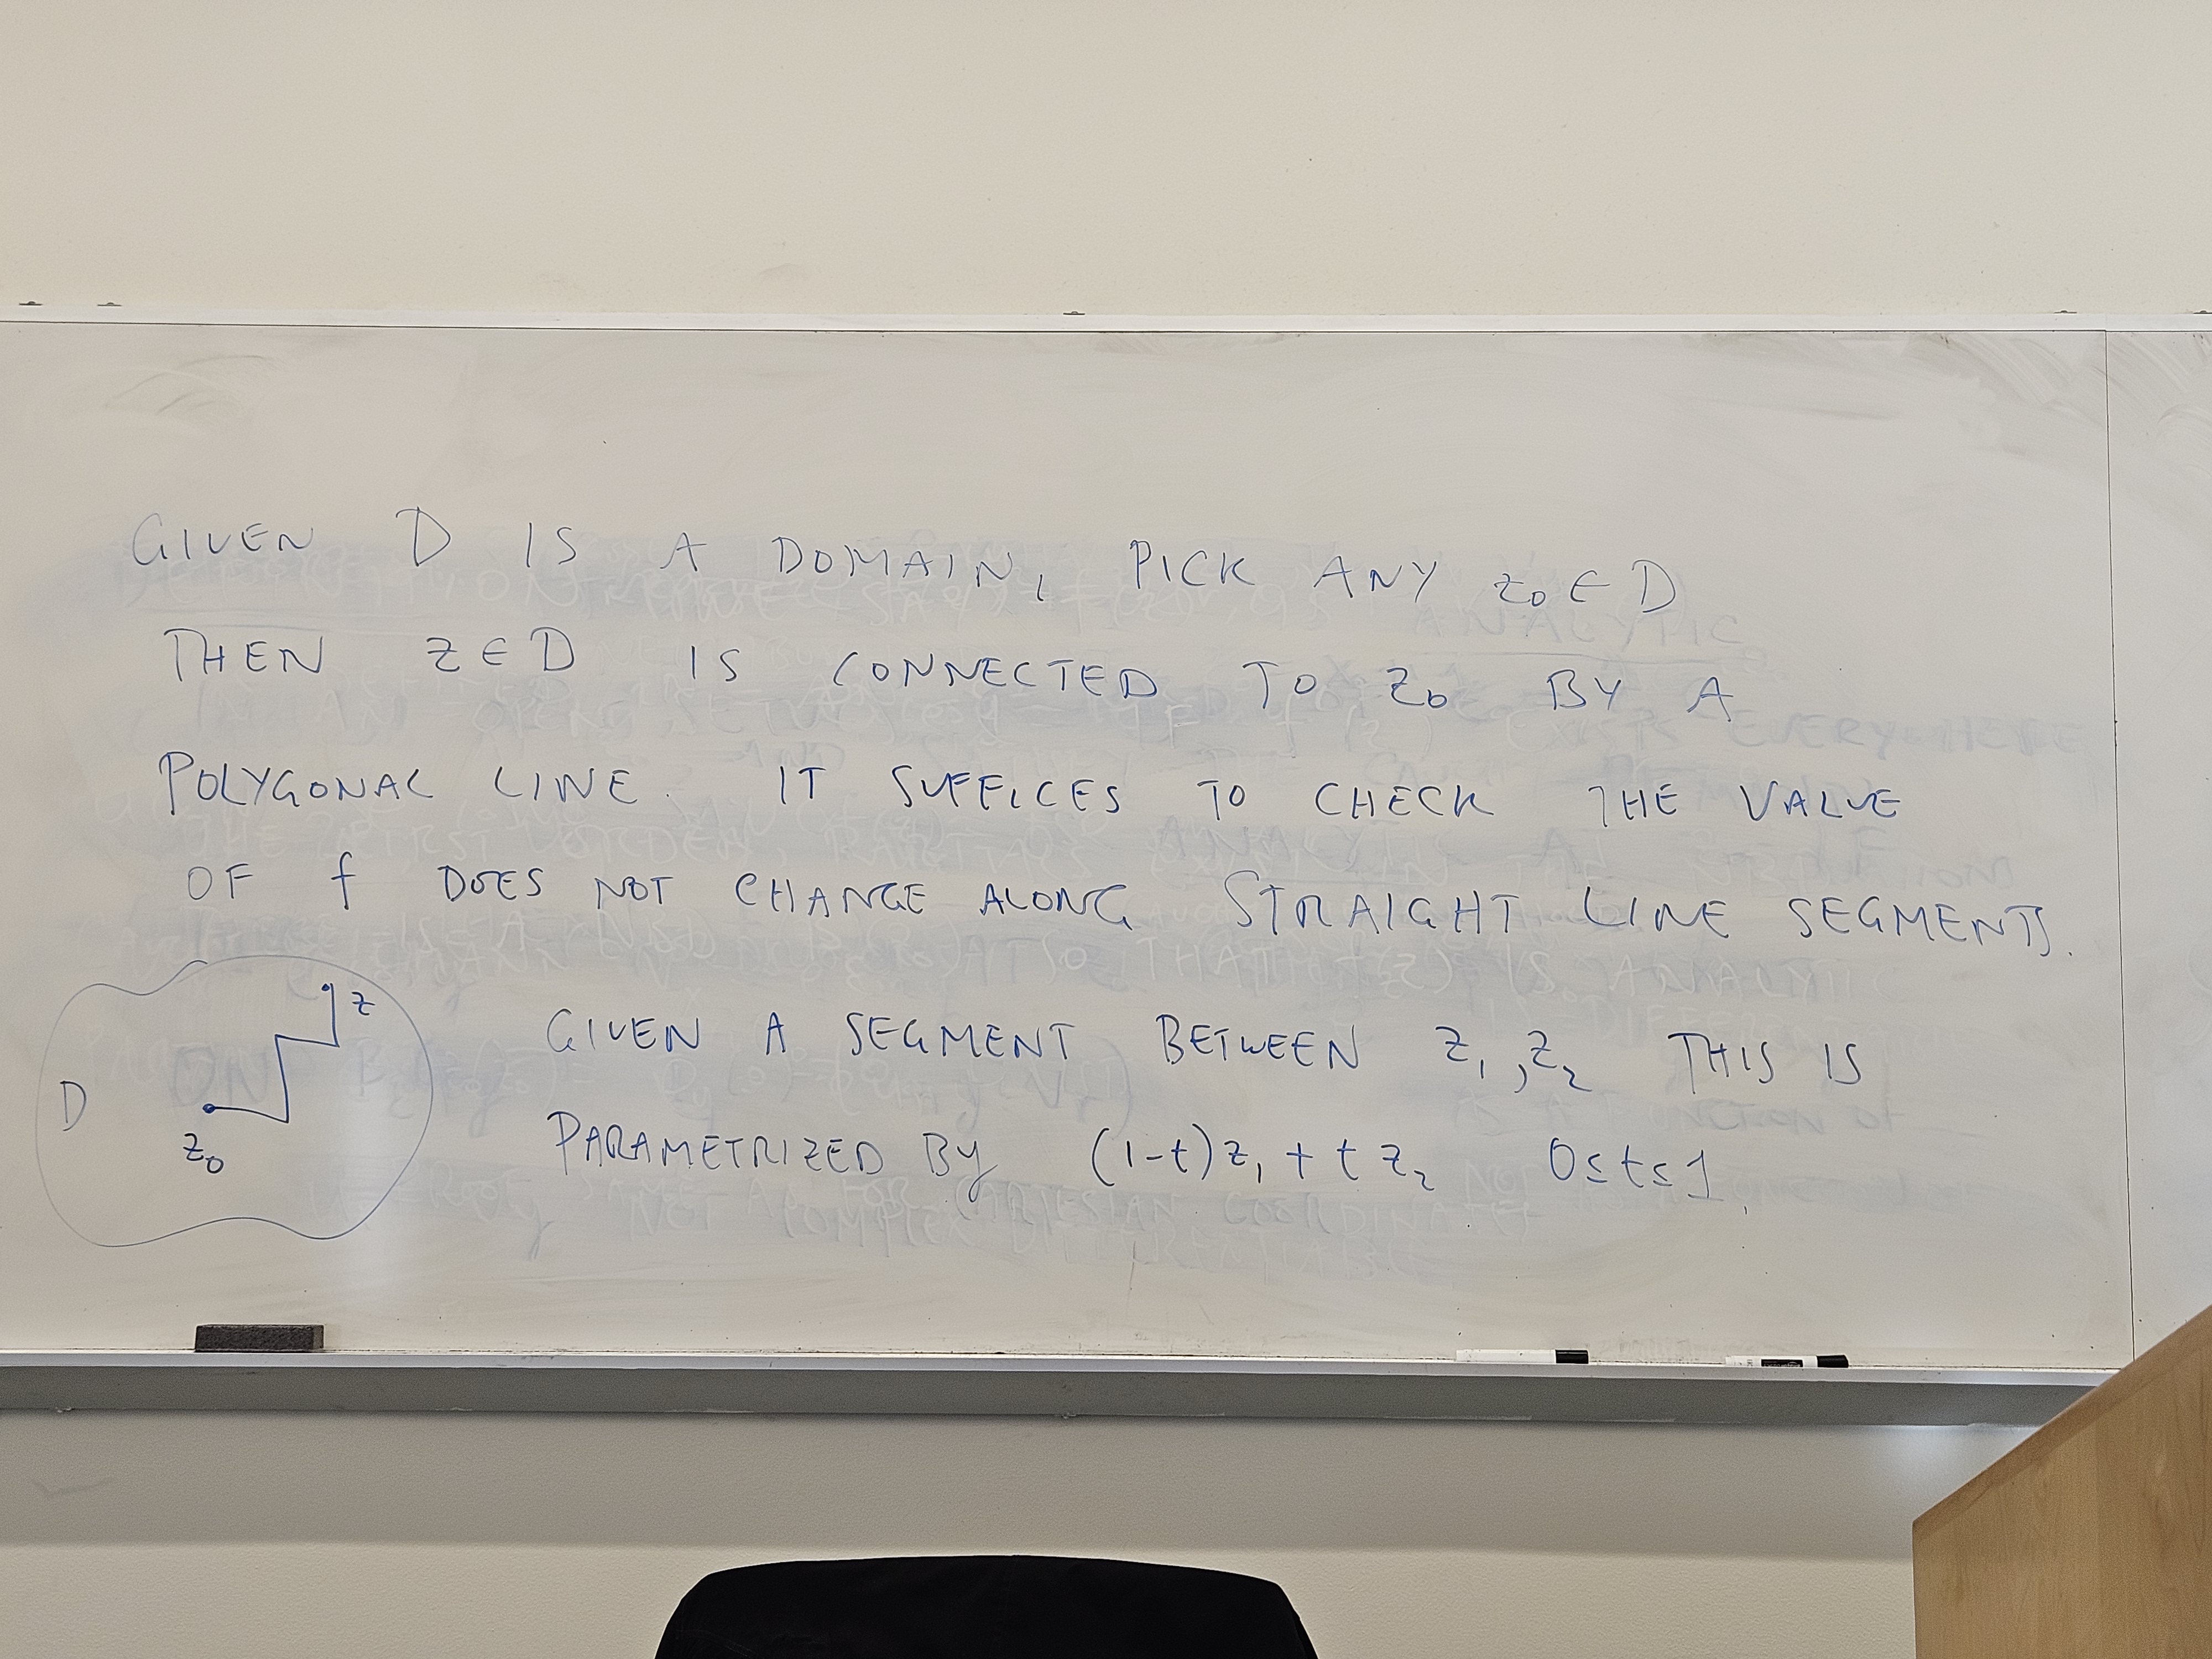 GIVEN D IS A DOMAIN, PICK ANY z₀∈D
THEN z∈D IS CONNECTED TO z₀ BY A
POLYGONAL LINE. IT SUFFICES TO CHECK THE VALUE
OF f DOES NOT CHANGE ALONG STRAIGHT LINE SEGMENTS.
z
D
z₀
GIVEN A SEGMENT BETWEEN z₁,z₂ THIS IS
PARAMETRIZED BY (1-t)z₁ + t z₂ 0≤t≤1